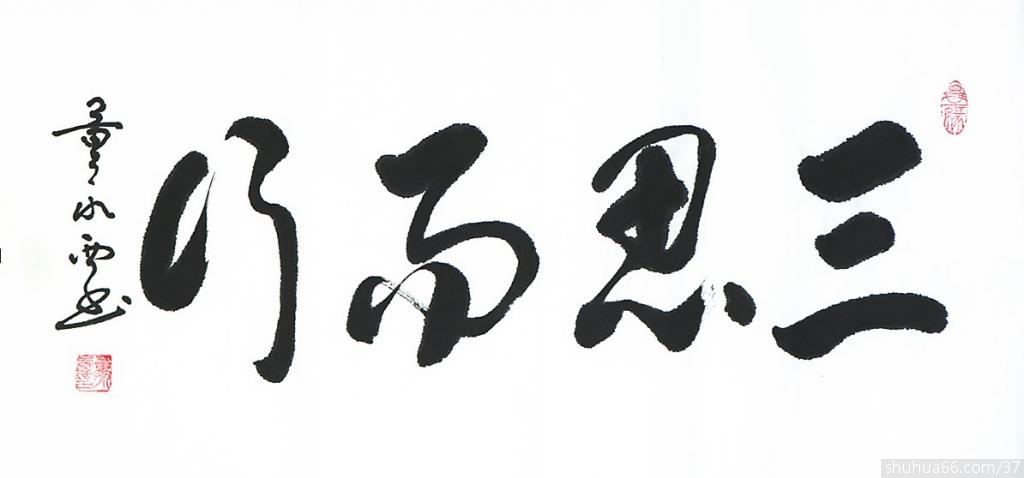 三思而行
shuhua66.com/37